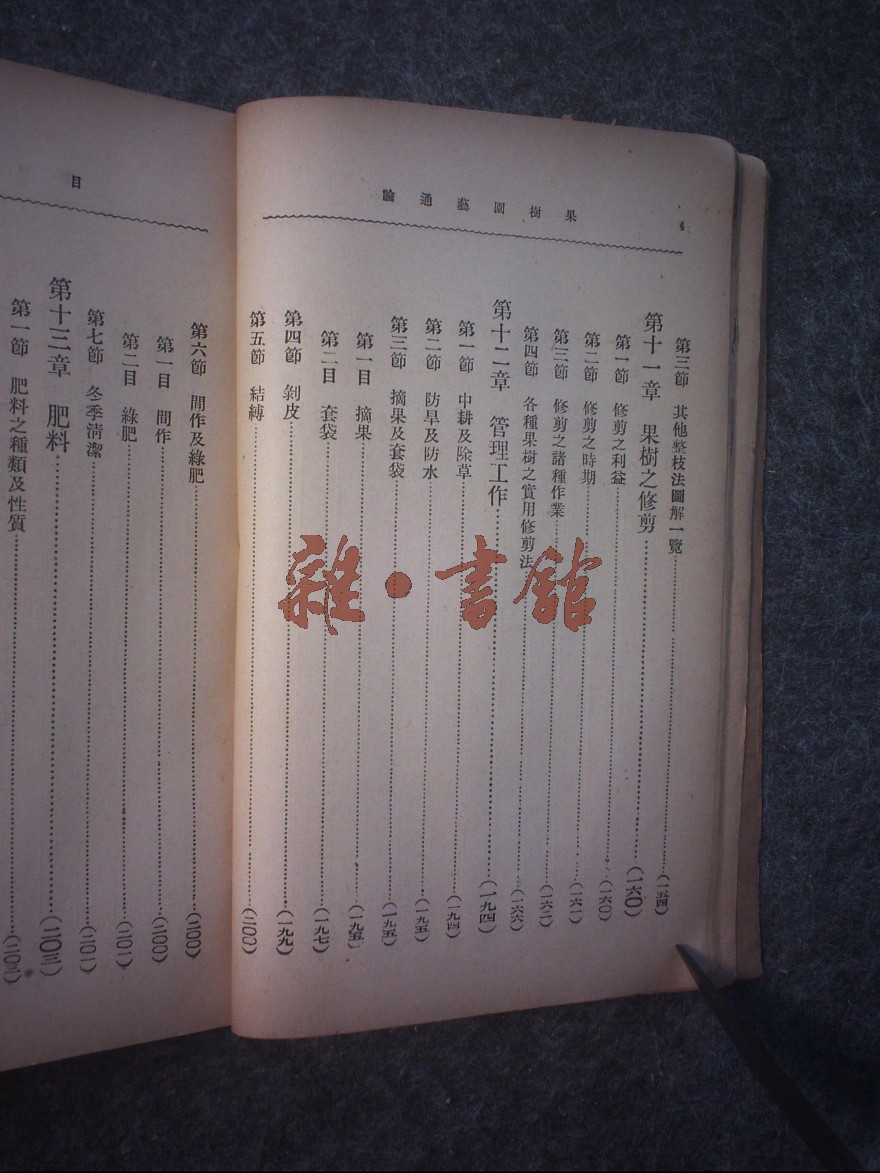 果樹園藝通論
4
第三節　其他整枝法圖解一覽……(一五四)
第十一章　果樹之修剪……(一六〇)
第一節　修剪之利益……(一六〇)
第二節　修剪之時期……(一六一)
第三節　修剪之諸種作業……(一六二)
第四節　各種果樹之實用修剪法……(一六六)
第十二章　管理工作……(一九四)
第一節　中耕及除草……(一九四)
第二節　防旱及防水……(一九五)
第三節　摘果及套袋……(一九五)
第一目　摘果……(一九五)
第二目　套袋……(一九七)
第四節　剝皮……(一九九)
第五節　結縛……(二〇〇)
目
第六節　間作及綠肥……(二〇〇)
第一目　間作……(二〇〇)
第二目　綠肥……(二〇一)
第七節　冬季清潔……(二〇二)
第十三章　肥料……(二〇三)
第一節　肥料之種類及性質……(二〇三)
雜·書館